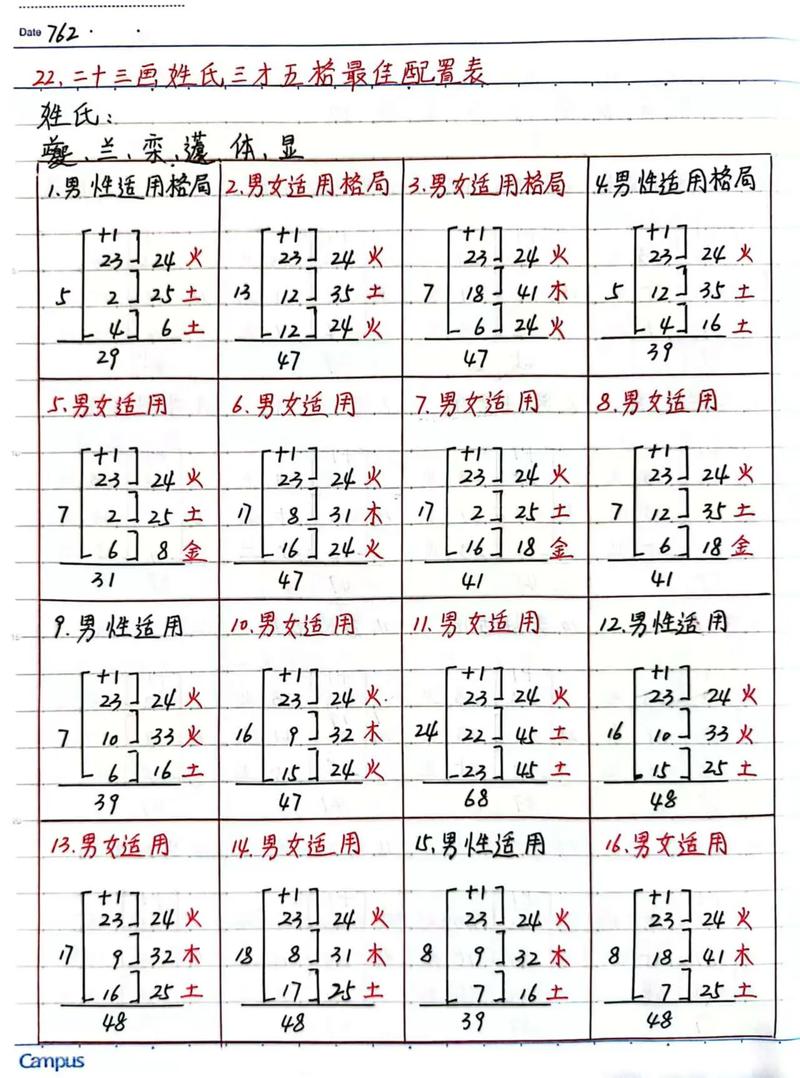 Date 762 · ·
22.二十三画姓氏三才五格最佳配置表
姓氏:
兰、栾、体、显
1.男性适用格局 2.男女适用格局 3.男女适用格局 4.男性适用格局
+1 +1 +1 +1
23 24 火 23 24 火 23 24 火 23 24 火
5 2 25 土 13 12 35 土 7 18 41 木 5 12 35 土
4 6 土 12 24 火 6 24 火 4 16 土
29 47 47 39
5.男女适用 6.男女适用 7.男女适用 8.男女适用
+1 +1 +1 +1
23 24 火 23 24 火 23 24 火 23 24 火
7 2 25 土 17 8 31 木 17 2 25 土 7 12 35 土
6 8 金 16 24 火 16 18 金 6 18 金
31 47 41 41
9.男性适用 10.男女适用 11.男女适用 12.男性适用
+1 +1 +1 +1
23 24 火 23 24 火 23 24 火 23 24 火
7 10 33 火 16 9 32 木 24 22 45 土 16 10 33 火
6 16 土 15 24 火 23 45 土 15 25 土
39 47 68 48
13.男女适用 14.男女适用 15.男性适用 16.男女适用
+1 +1 +1 +1
23 24 火 23 24 火 23 24 火 23 24 火
17 9 32 木 18 8 31 木 8 9 32 木 8 18 41 木
16 25 土 17 25 土 7 16 土 7 25 土
48 48 39 48
Campus